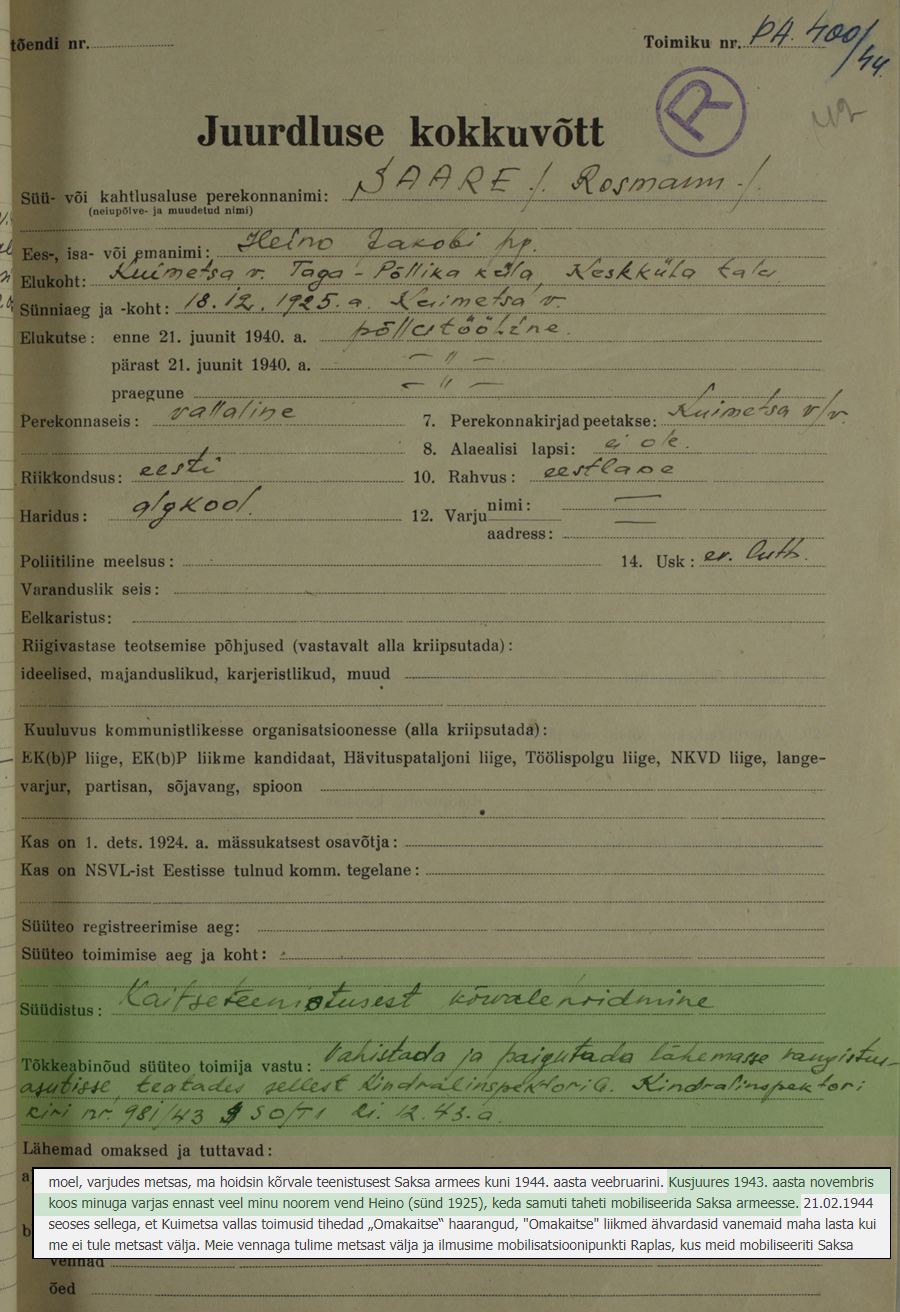 tõendi nr.
Toimiku nr. PA. 400/44.
R
42
Juurdluse kokkuvõtt
Süü- või kahtlusaluse perekonnanimi: SAARE /. Rosmann -/.
(neiupõlve- ja muudetud nimi)
Ees-, isa- või emanimi: Heino Jakobi pg.
Elukoht: Kuimetsa v. Taga-Põllika küla, Keskküla talu
Sünniaeg ja -koht: 18. 12. 1925. a. Kuimetsa v.
Elukutse: enne 21. juunit 1940. a. põllutööline.
pärast 21. juunit 1940. a. — " —
praegune — " —
Perekonnaseis: vallaline 7. Perekonnakirjad peetakse: Kuimetsa v/v.
8. Alaealisi lapsi: ei ole.
Riikkondsus: eesti 10. Rahvus: eestlane
Haridus: algkool. 12. Varju nimi: —
aadress: —
Poliitiline meelsus: 14. Usk: ev. luth.
Varanduslik seis:
Eelkaristus:
Riigivastase teotsemise põhjused (vastavalt alla kriipsutada):
ideelised, majanduslikud, karjeristlikud, muud
Kuuluvus kommunistlikesse organisatsioonesse (alla kriipsutada):
EK(b)P liige, EK(b)P liikme kandidaat, Hävituspataljoni liige, Töölispolgu liige, NKVD liige, lange-
varjur, partisan, sõjavang, spioon
Kas on 1. dets. 1924. a. mässukatsest osavõtja:
Kas on NSVL-ist Eestisse tulnud komm. tegelane:
Süüteo registreerimise aeg:
Süüteo toimimise aeg ja koht:
Süüdistus: Kaitseteenistusest kõrvalehoidmine
Tõkkeabinõud süüteo toimija vastu: Vahistada ja paigutada lähemasse vangistus-
asutisse, teatades sellest Kindralinspektorile. Kindralinspektori
kiri nr. 981/43
Lähemad omaksed ja tuttavad:
a
moel, varjudes metsas, ma hoidsin kõrvale teenistusest Saksa armees kuni 1944. aasta veebruarini. Kusjuures 1943. aasta novembris
koos minuga varjas ennast veel minu noorem vend Heino (sünd 1925), keda samuti taheti mobiliseerida Saksa armeesse. 21.02.1944
seoses sellega, et Kuimetsa vallas toimusid tihedad „Omakaitse“ haarangud, "Omakaitse" liikmed ähvardasid vanemaid maha lasta kui
me ei tule metsast välja. Meie vennaga tulime metsast välja ja ilmusime mobilisatsioonipunkti Raplas, kus meid mobiliseeriti Saksa
vennad
õed